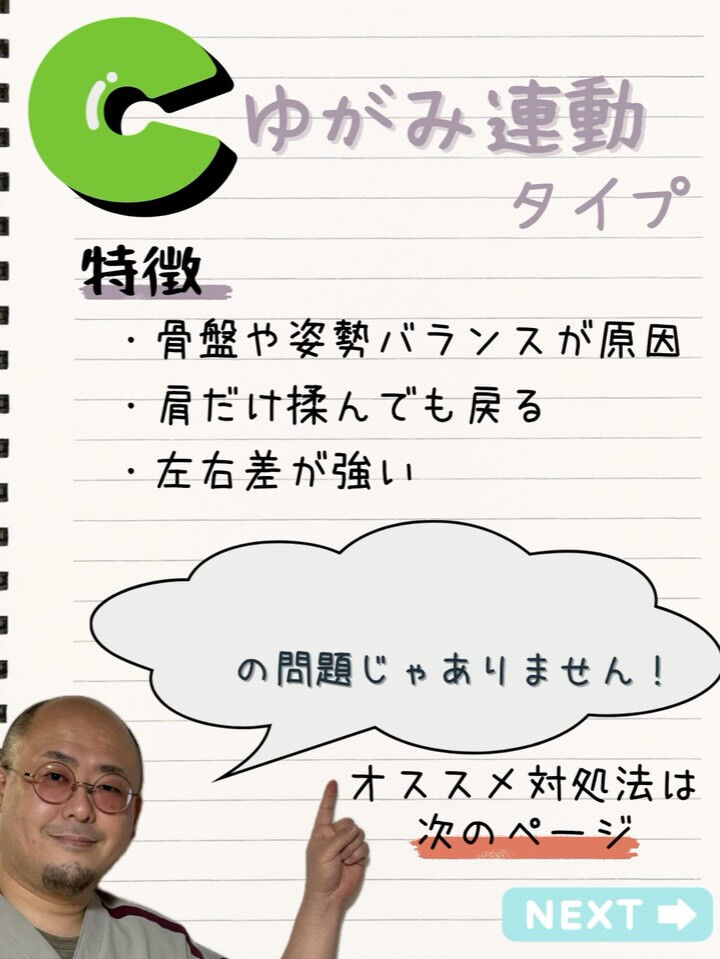 C ゆがみ連動
タイプ
特徴
・骨盤や姿勢バランスが原因
・肩だけ揉んでも戻る
・左右差が強い
の問題じゃありません！
オススメ対処法は
次のページ
NEXT